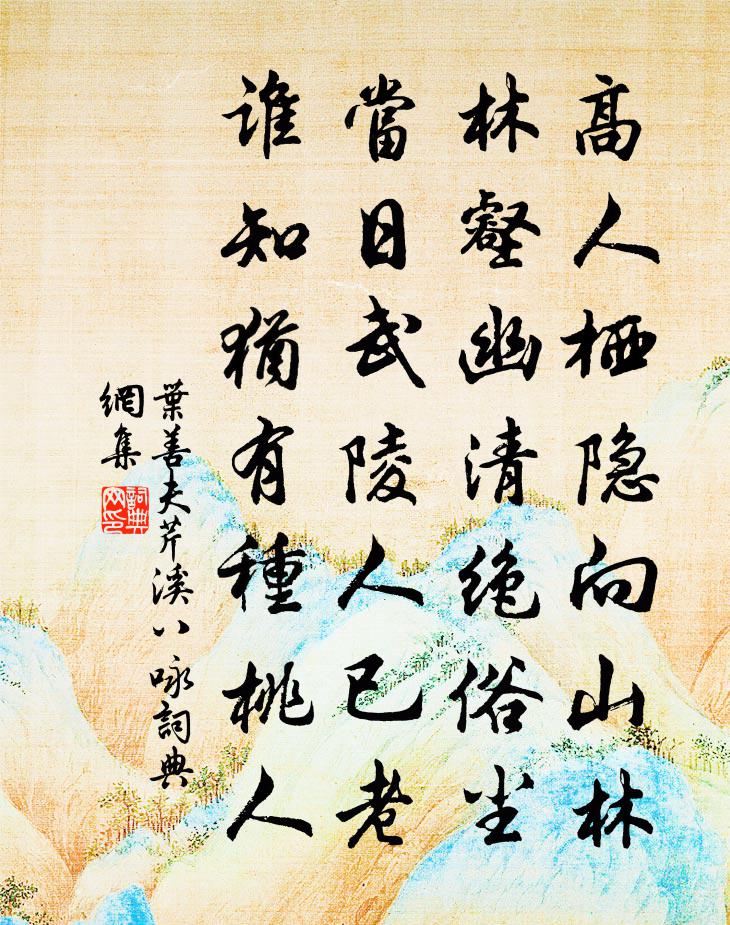 高人栖隐向山林
林壑幽清绝俗尘
當日武陵人已老
谁知猶有種桃人
葉善夫芹溪八咏詞典
網集
詞典
网印